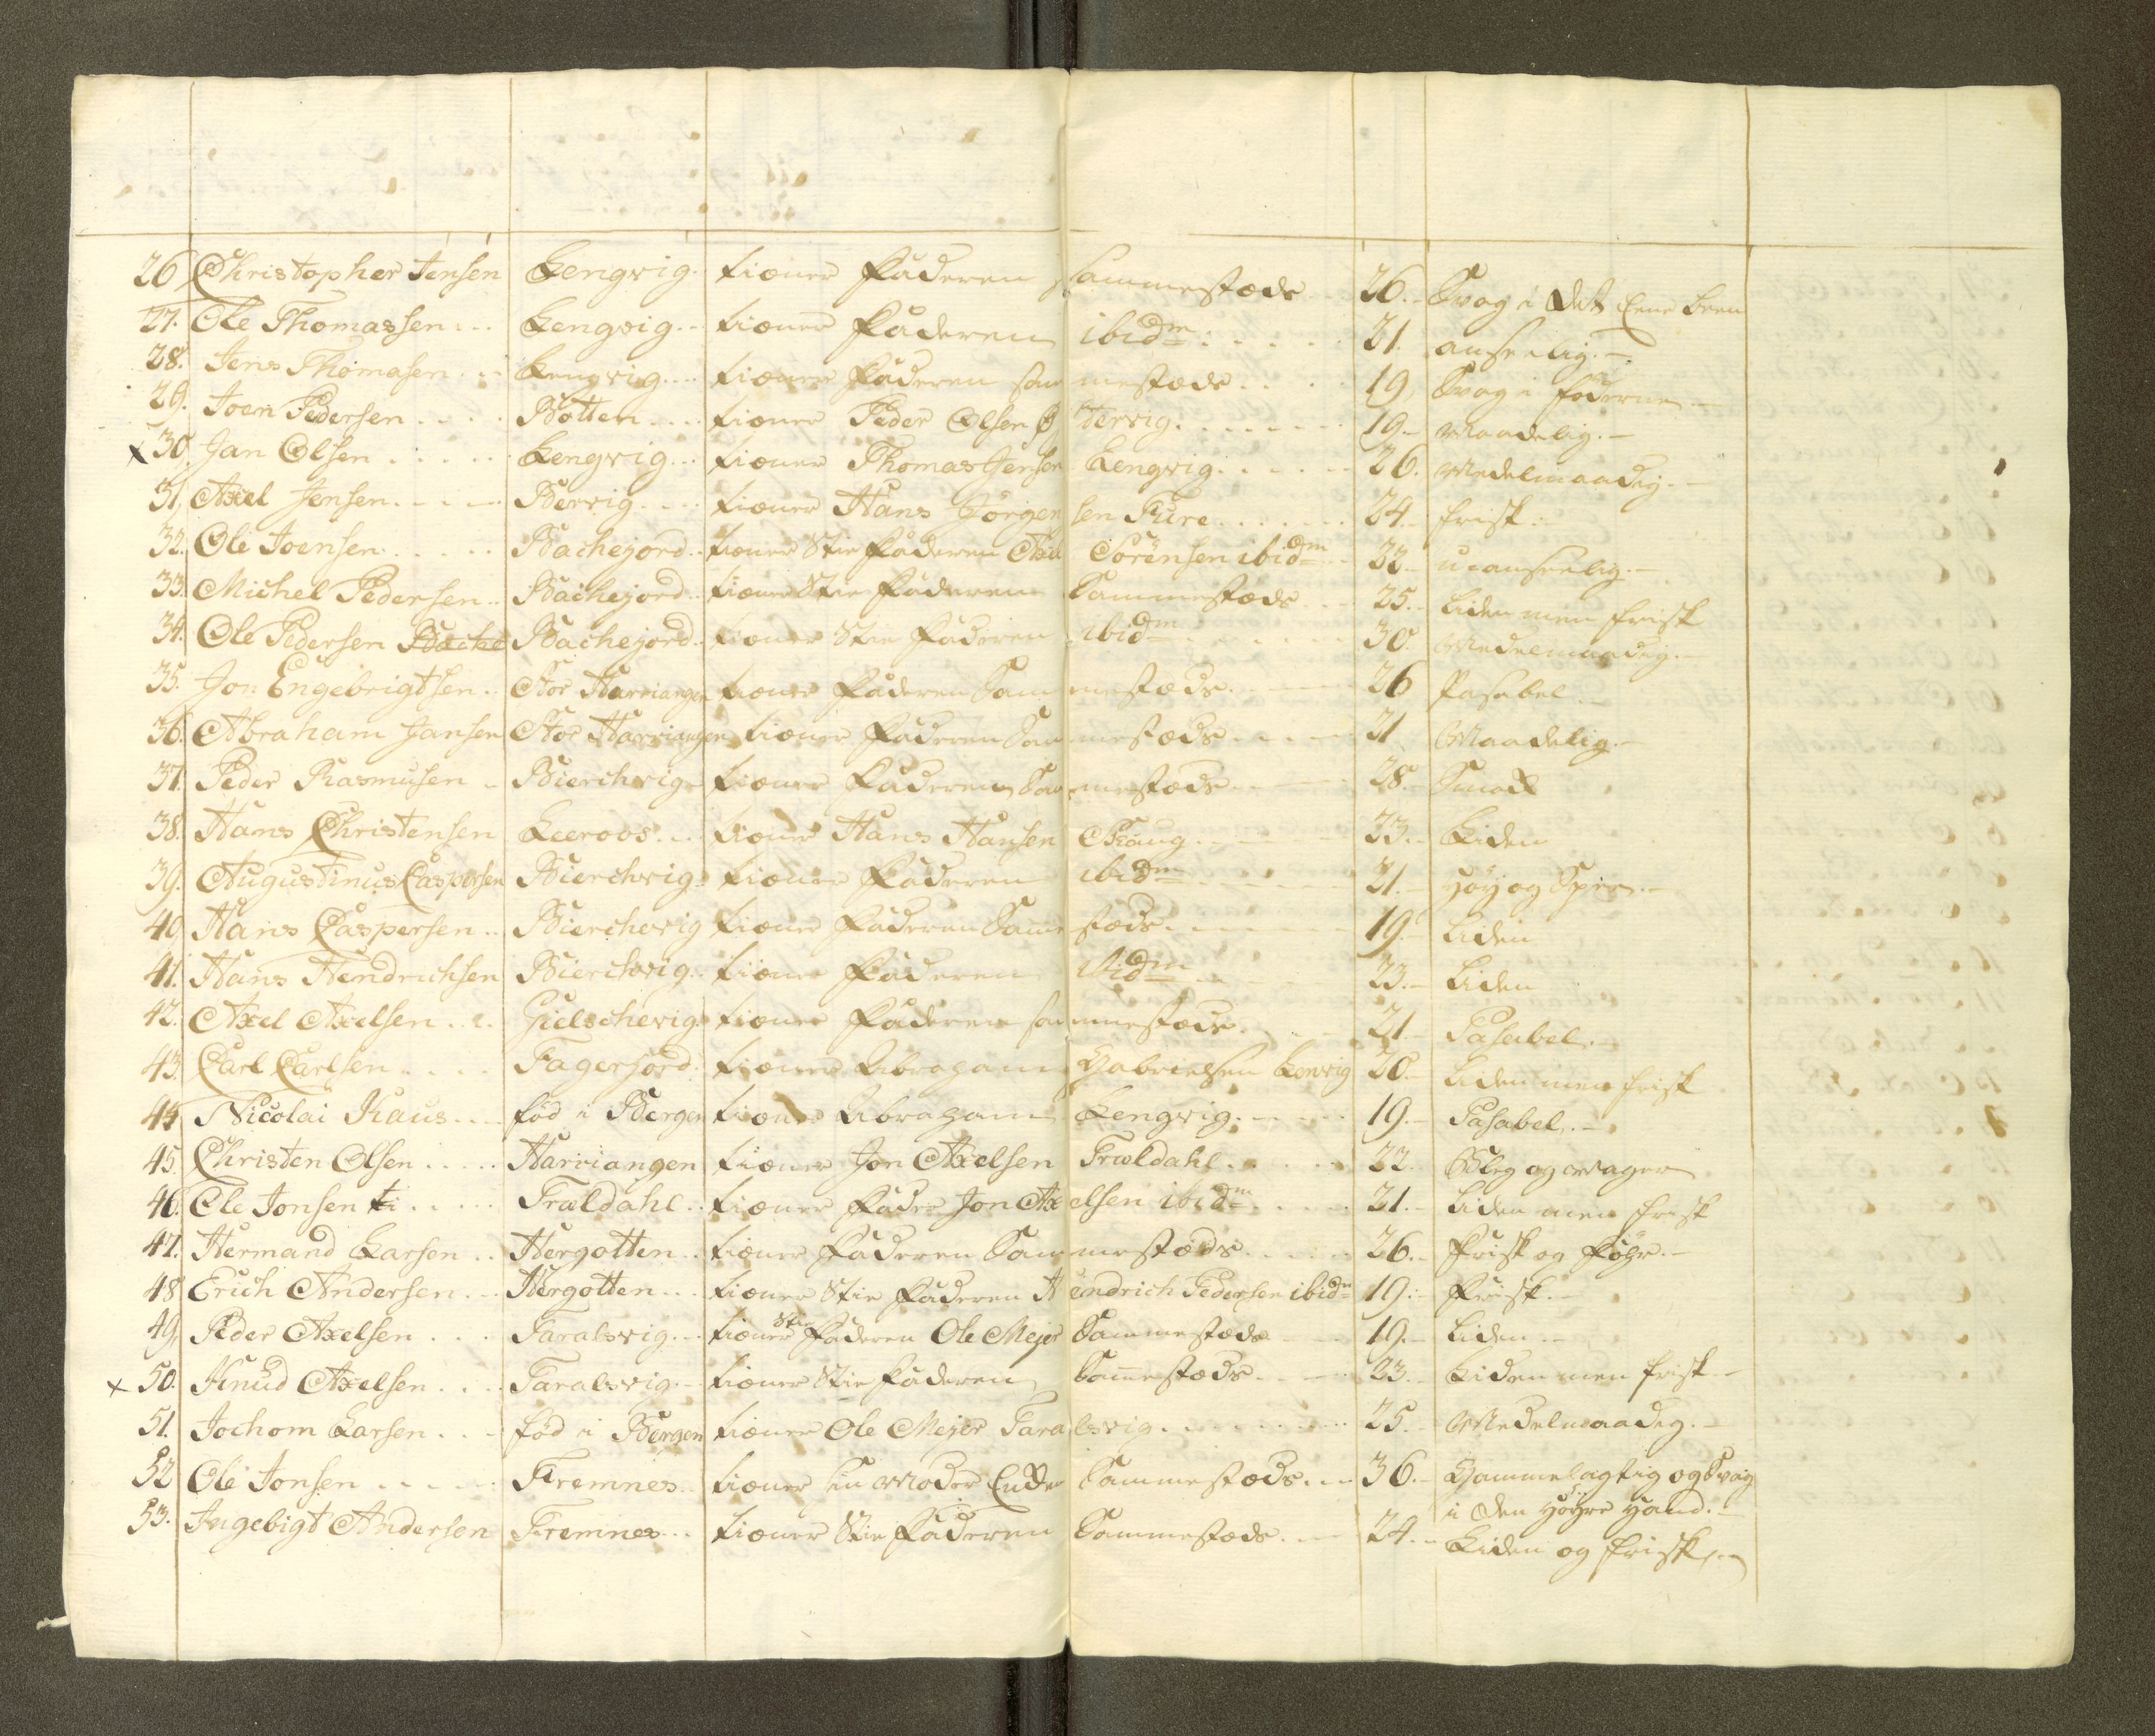 26. Christopher Jensen Lengvig. tiæner Faderen sammestæds 26. Svag i det Eene Been
27. Ole Thomassen... Lengvig... tiæner Faderen ibidm..... 21. anseelig.-
28. Jens Thomasen... Lengvig.... tiæner Faderen sammestæds.... 19. Svag i
29. Joen Pedersen.... Botten.... tiæner Peder Olsen 19.- Maadelig.-
x 30. Jan Olsen...... Lengvig... tiæner Thomas Jensen Lengvig..... 26. Medelmaadig.-
31. Axel Jensen..... Bervig.... tiæner Hans Jörgensen Fure...... 24.- frisk.
32. Ole Joensen...... Bachejord.. tiæner Stif Faderen Axel Sörensen ibidm.. 22.- uanseelig.-
33. Michel Pedersen.. Bachejord.. tiæner Stif Faderen Sammestæds... 25.- Liden men frisk
34. Ole Pedersen Bache Bachejord.. tiæner Stif Faderen ibidm...... 30. Medelmaadig.-
35. Jon Engebrigtsen.. Stor Harriangen tiæner Faderen Sammestæds..... 26 Pasabel.-
36. Abraham Jansen Stor Harriangen tiæner Faderen Sammestæds..... 21 Maadelig.-
37. Peder Rasmusen.. Bierchvig.. tiæner Faderen Sammestæds.... 28.- Smuk
38. Hans Christensen Leeroos... tiæner Hans Hansen Skaug..... 23.- Liden
39. Augustinus Caspersen Bierchvig.. tiæner Faderen ibidm..... 21.- Höy og Spæ.-
40. Hans Caspersen.. Bierchvig tiæner Faderen Sammestæds..... 19.- Liden
41. Hans Hendrichsen Bierchvig.. tiæner Faderen ibidm.... 23.- Liden
42. Axel Axelsen... Gielschevig. tiæner Faderen sammestæds.... 21- Pasabel.-
43. Carl Carlsen.... Fagerjord. tiæner Abraham Gabrielsen Lenvig 20.- Liden men frisk
44. Nicolai Kaus... föd i Bergen tiæner Abraham Lengvig..... 19.- Pasabel.-
45. Christen Olsen..... Harriangen tiæner Jon Axelsen Trældahl..... 22. Bleg og Mager
46. Ole Jonsen..... Trældahl.. tiæner Fader Jon Axelsen ibidm..... 21.- Liden men frisk
47. Hermand Larsen.. Hergotten.. tiæner Faderen Sammestæds..... 26.- frisk og för.-
48. Erich Andersen.. Hergotten... tiæner Stif Faderen Hendrich Pedersen ibidm 19.- frisk.-
49. Peder Axelsen... Taralsvig... tiæner Stif Faderen Ole Mejer Sammestæds 19.- Liden.-
x 50. Knud Axelsen.... Taralsvig.- tiæner Stif Faderen Samestæds.... 23.- Liden men frisk.-
51. Jochom Larsen... föd i Bergen tiæner Ole Mejer Taralsvig........ 25.- Medelmaadig.-
52. Ole Jonsen..... Fremnes.. tiæner sin Moder Sammestæds... 36.- Gammelagtig og Svag
i den Höyre Haand.-
53. Ingebigt Andersen Fremnes... tiæner Stif Faderen Sammestæds.- 24.- Liden og frisk.-